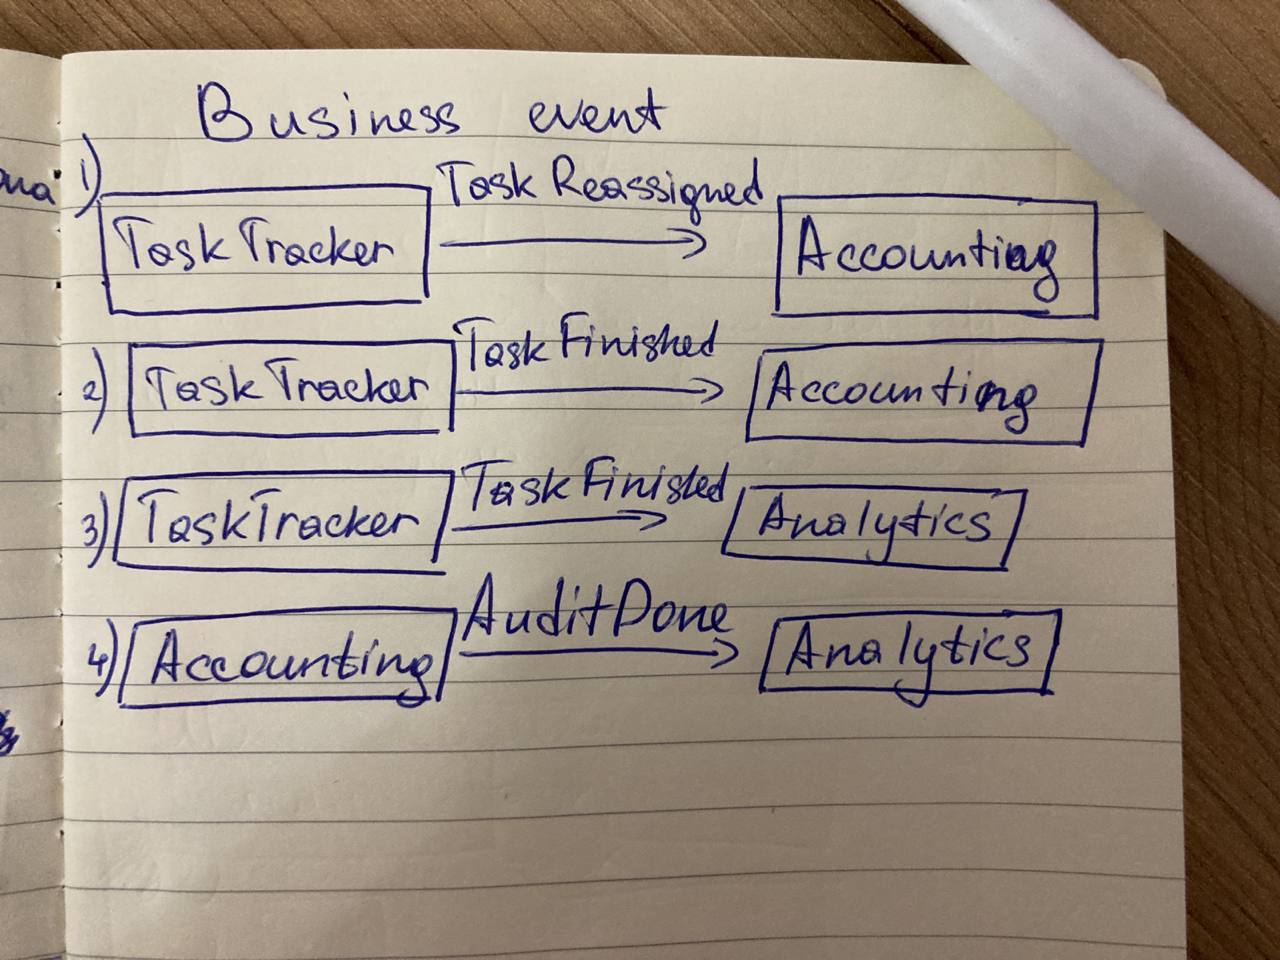 Business event
1) TaskTracker TaskReassigned Accounting
2) TaskTracker TaskFinished Accounting
3) TaskTracker TaskFinished Analytics
4) Accounting AuditDone Analytics